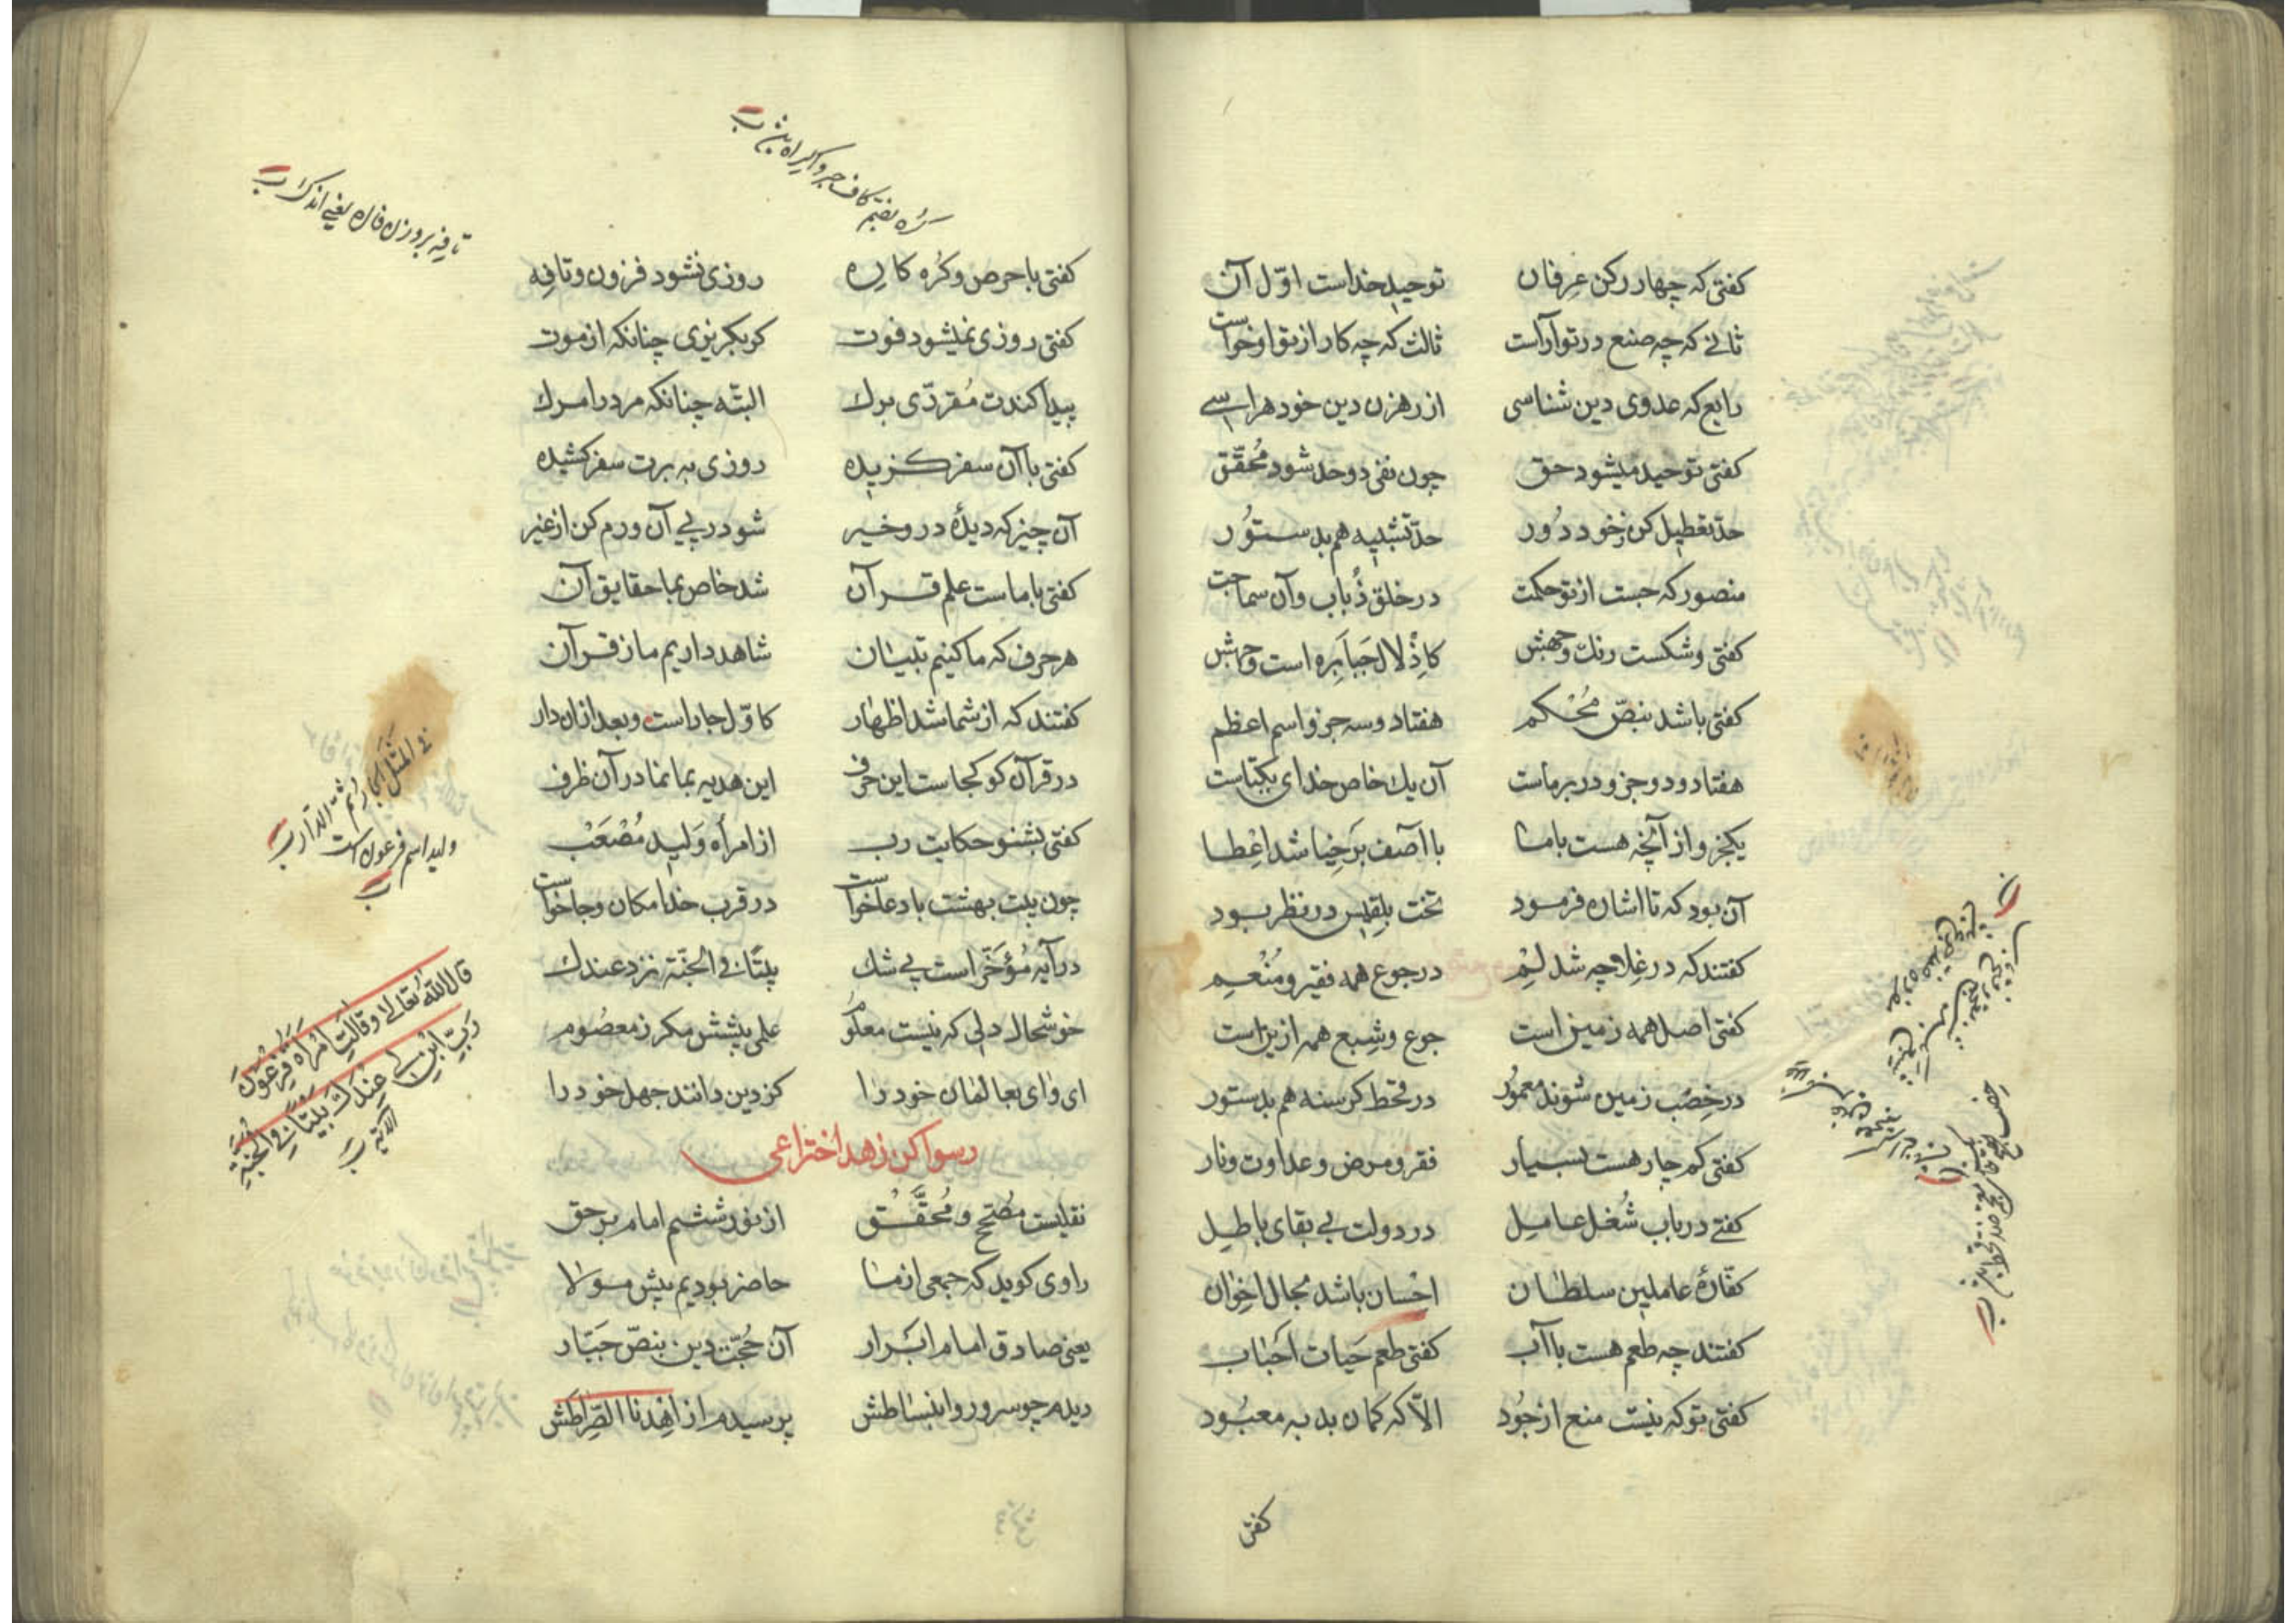 کفتی که چهار رکن عرفان توحید خداست اوّل آن
ثانے که چه صنع در تو آراست ثالث که چه کار از تو او خواست
رابع که عدوی دین شناسی از رهزن دین خود هراسے
کفتی توحید میشود حق چون نفی دو حد شود مُحقّق
حدّ تعطیل کن زخود دُور حدّ تشبیه هم بدستوُر
منصور که جست از تو حکمت در خلق ذُباب و آن سماجت
کفتی و شکست رنك و جهش کاِذْلال جَبابَره است و جهش
کفتی باشد بنصّ مُحْکم هفتاد و سه جزو اسم اعظم
هفتاد و دو جزو در بر ماست آن یك خاص خدای یکتاست
یکجزو از آنچه هست با ما با آصف بَرخِیا شد اِعْطا
آن بود که تا اشاره فرمود تخت بلِقیس در نظر بود
کفتند که در غِلا چه شد لِمْ در جوع همه فقیر و مُنْعِم
کفتی اصل همه زمین است جوع و شِبع همه ازین است
در خِصْب زمین شوند معمُور در قحط کرسنه هم بدستور
کفتی کم چار هست بسیار فقر و مرض و عداوت و نار
کفتے در باب شُغل عامِل در دولت بے بقای باطِل
کفّارهٔ عاملین سلطان احْسان باشد بحال اخِوان
کفتند چه طعم هست با آب کفتی طعم حَیات اَحْباب
کفتی تو که نیست منع از جُود الاّ که کمان بد به معبُود
کفتی
کُره بضم کاف جبر و اکراه
تافِه بر وزن فاره یعنے اندك
کفتی با حرص و کُره کارِه روزی نشود فزون و تافِه
کفتی روزی نمیشود فوت کر بکریزی چنانکه از موت
پیدا کندت مُقرّدی برك البتّه چنانکه مرد را مرك
کفتی با آن سفر کزیده روزی به برت سفر کشیده
آن چیز که دیدهٔ در و خیر شو در پے آن و رم کن از غیر
کفتی با ماست علم قرآن شد خاص بما حقایق آن
هر حرف که ما کنیم تبیان شاهد داریم ما ز قرآن
کفتند که از شما شد اظهار کاوّل جار است و بعد ازان دار
در قرآن کو کجاست این حرف این هدیه بما نما در آن ظرف
کفتی بشنو حکایت رب از امرأه وَلید مُصْعَبْ
چون بیت بهشت با دعا خواست در قرب خدا مکان و جا خواست
در آیه مُؤخّر است بے شك بیتًا فے الجنّة نزد عندك
خوشحال دلی که نیست معلُوم علمی پیشش مکر ز معصُوم
ای وای بعالمان خود را کز دین دانند جهل خود را
رسوا کن زهد اختراعی
نقلیست مصُحّح و مُحقَّق از نور ششم امام بر حق
راوی کوید که جمعی از ما حاضر بودیم پیش مولا
یعنی صادق امام ابَرار آن حُجّت دین بنصّ جبّار
دیدم چو سرور و انبساطش پرسیدم از اهِدنا الصِّراطَش
فے المثل الجار ثم الدّار
ولید اسم فرعون است
قال اللّه تعالے و قالَتِ امْرَأة فِرْعَوْن
رَبِّ ابْنِ لے عِنْدَكَ بَیْتًا فے الجَنّةِ
الآیه